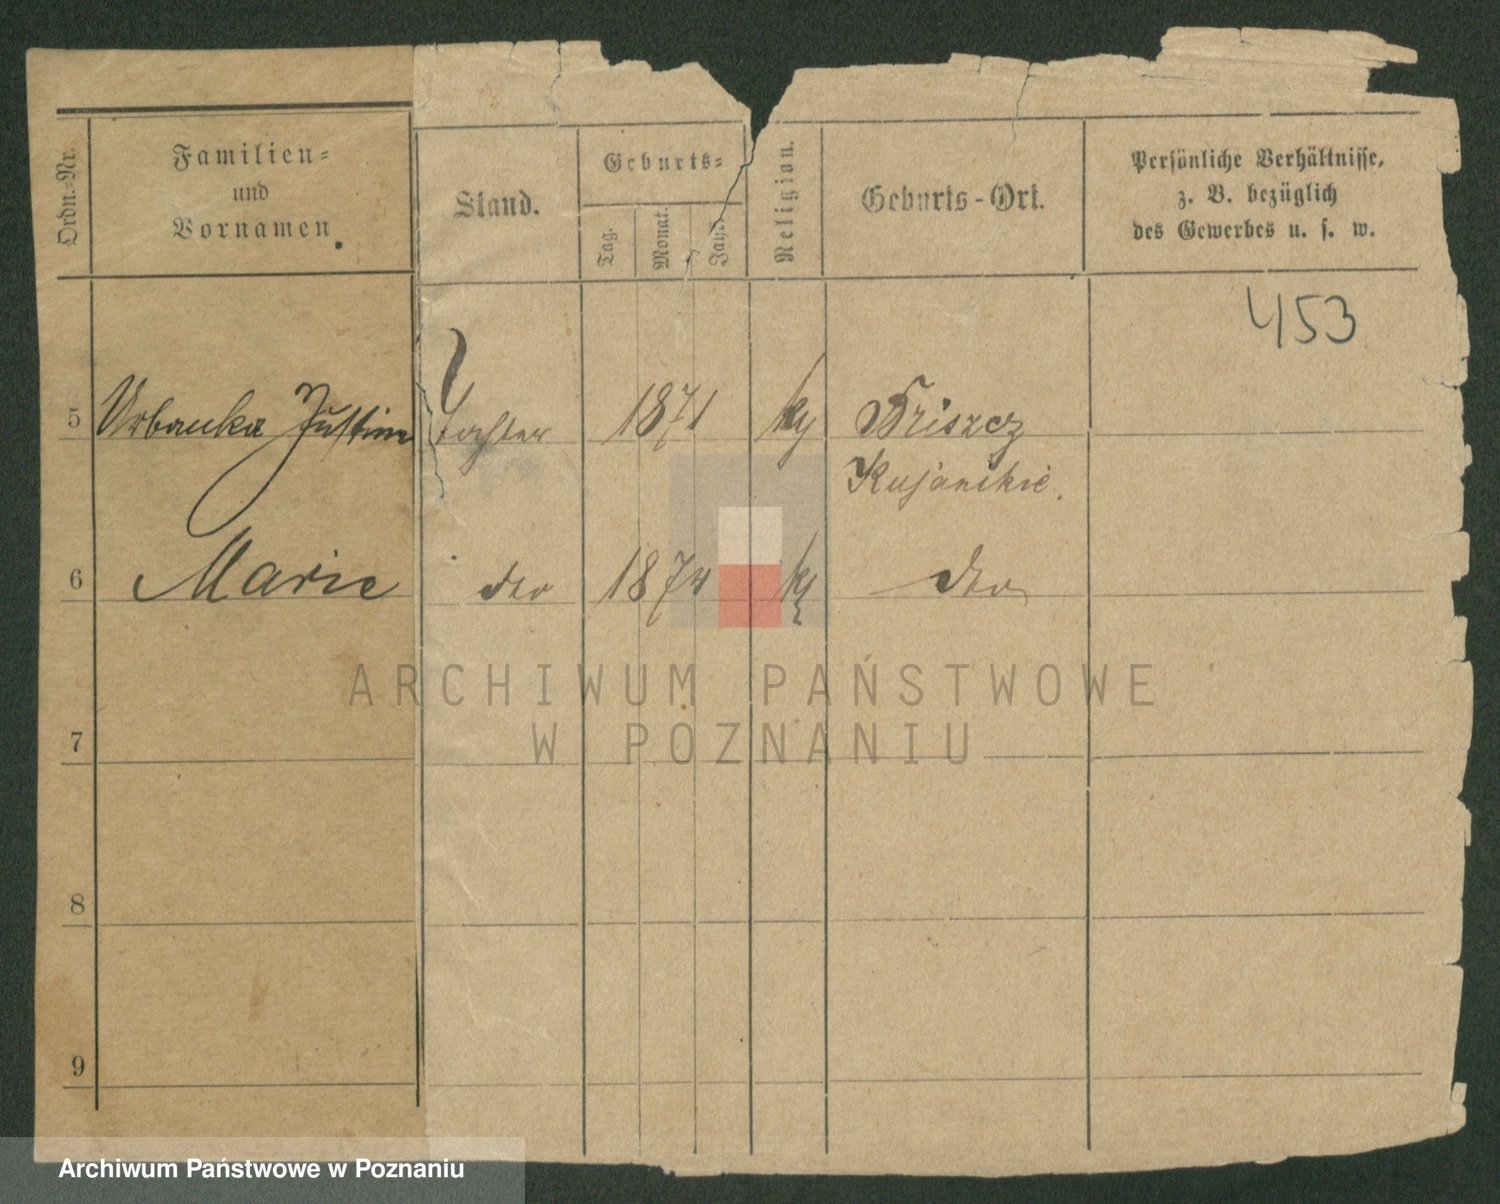 Ordn.-Nr.
Familien-
und
Vornamen.
Stand.
Geburts-
Tag.
Monat.
Jahr.
Religion.
Geburts-Ort.
Persönliche Verhältnisse,
z. B. bezüglich
des Gewerbes u. s. w.
453
5 Urbanka Justine Tochter 1871
Kujanskie.
6 Marie dto 1874 dto
7
8
9
ARCHIWUM PAŃSTWOWE
W POZNANIU
Archiwum Państwowe w Poznaniu